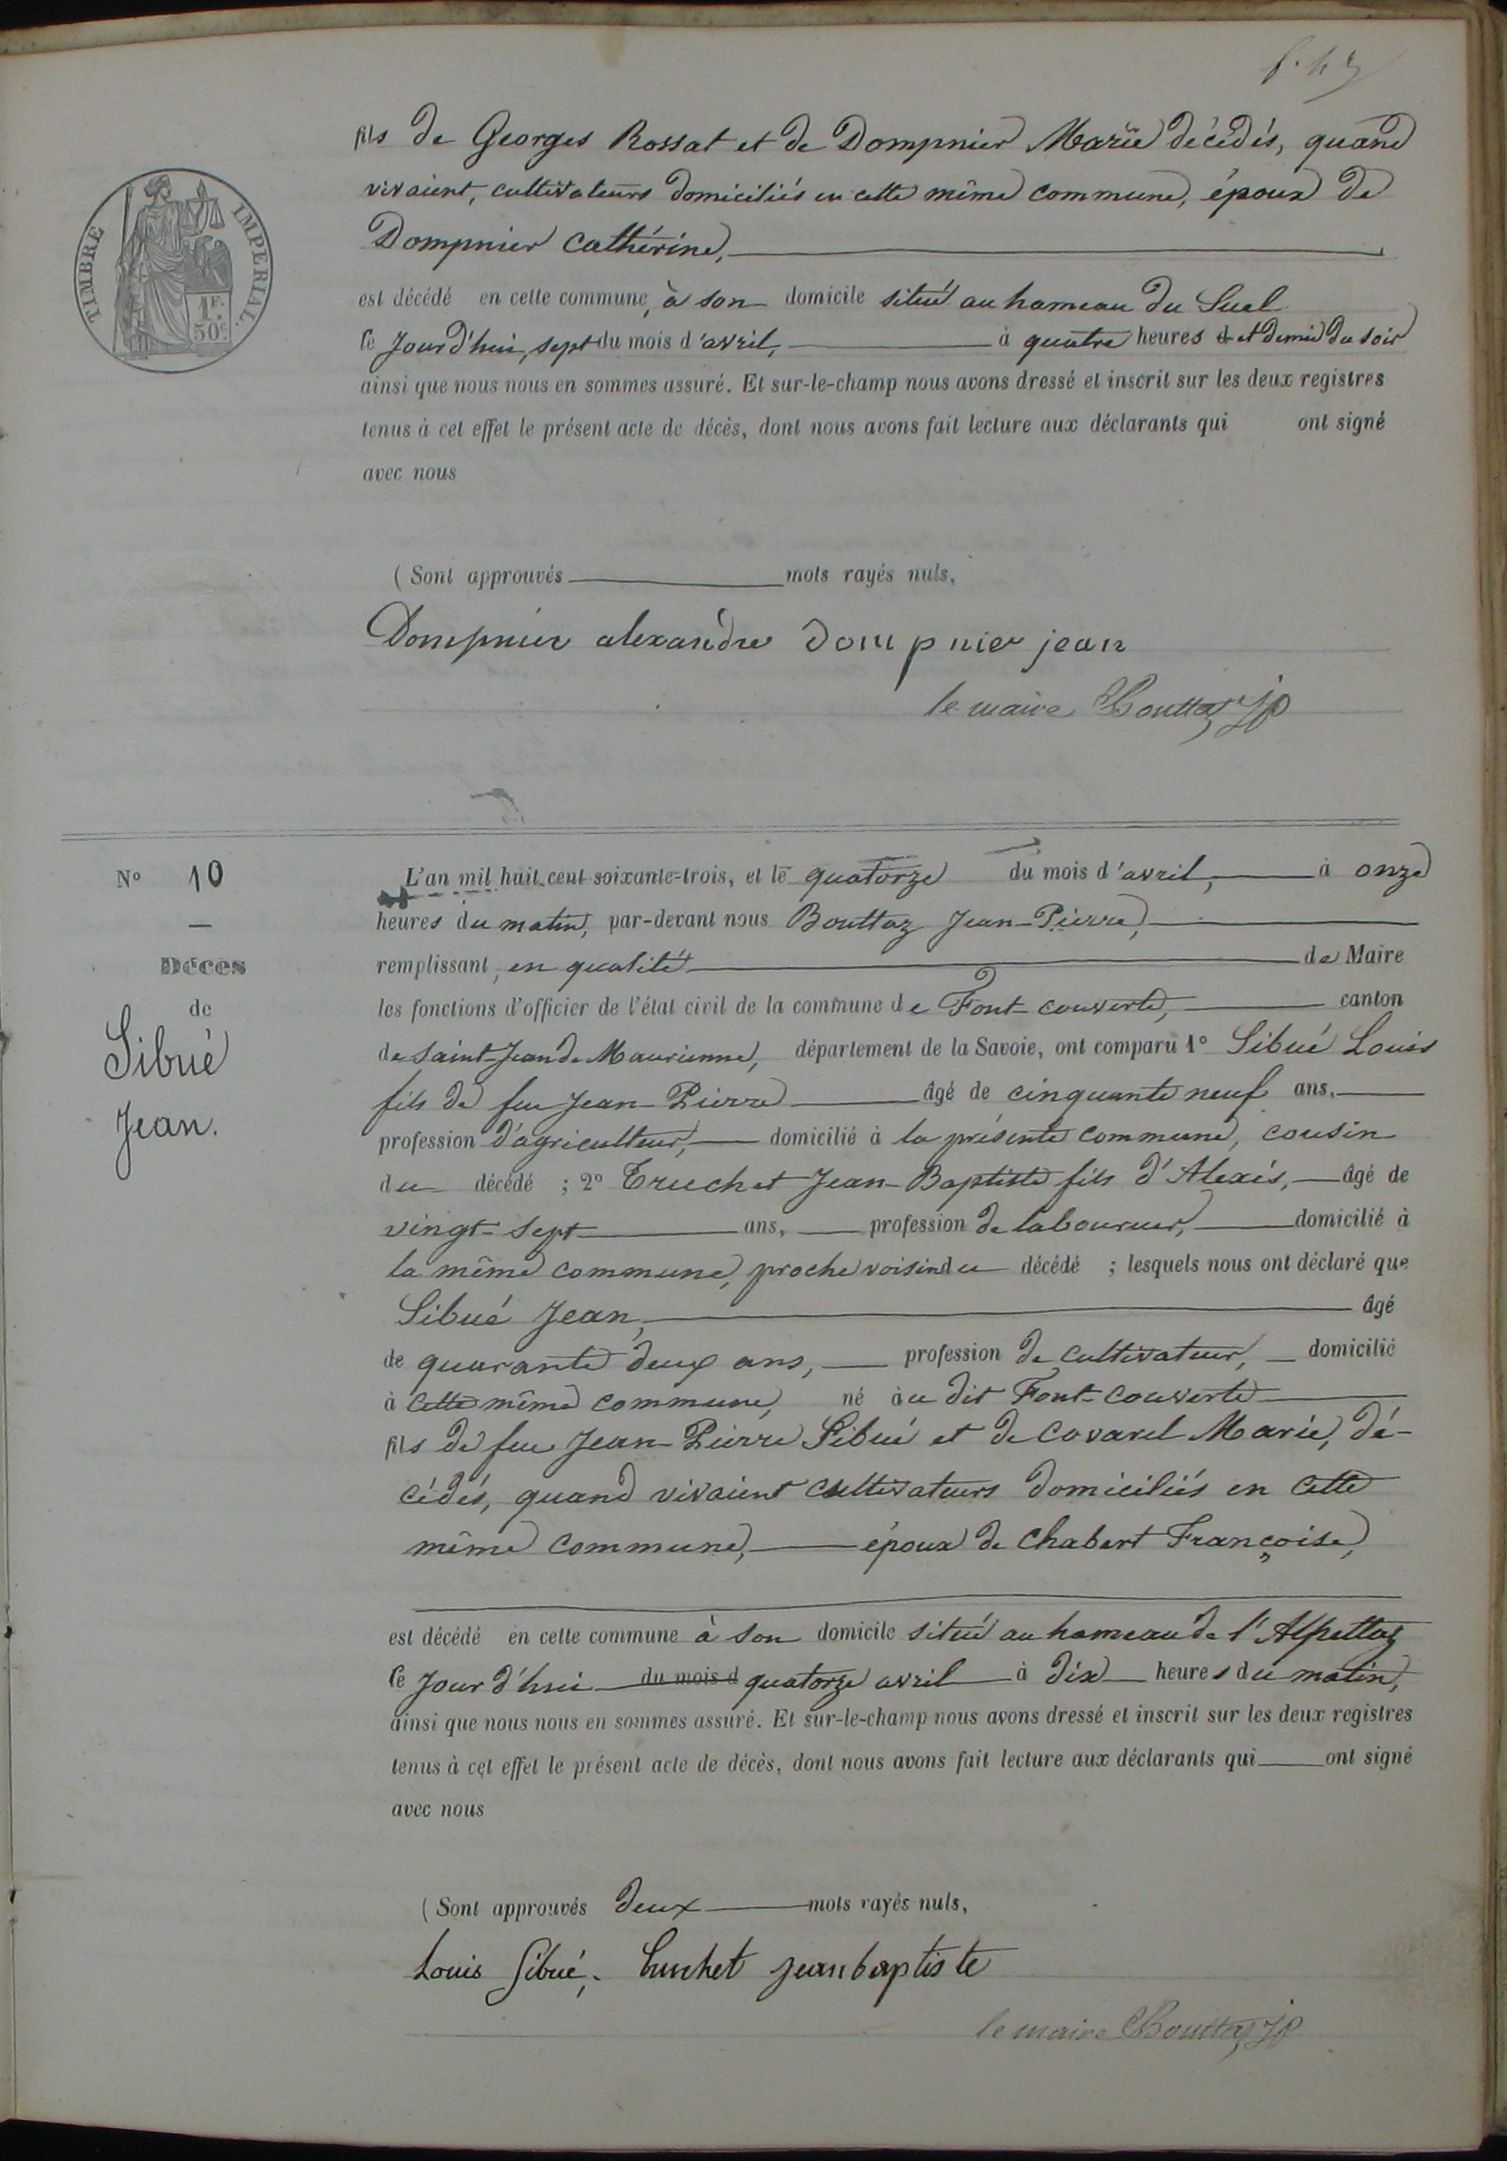 fils de Georges Rossat et de Dompnier Marie décédés, quand
vivaient, cultivateurs domiciliés en cette même commune, époux de
Dompnier Cathérine,
TIMBRE IMPERIAL
1F. 50c
est décédé en cette commune, à son domicile situé au hameau du Suel
le Jourd'hui, sept du mois d'avril, à quatre heures et demie du soir
ainsi que nous nous en sommes assuré. Et sur-le-champ nous avons dressé et inscrit sur les deux registres
tenus à cet effet le présent acte de décès, dont nous avons fait lecture aux déclarants qui ont signé
avec nous
(Sont approuvés mots rayés nuls,
Dompnier alexandre dompnier jean
le maire Bouttaz JP
N° 10
Décès
de
Sibué
Jean.
L'an mil huit cent soixante-trois, et le quatorze du mois d'avril, à onze
heures du matin, par-devant nous Bouttaz Jean-Pierre,
remplissant, en qualité de Maire
les fonctions d'officier de l'état civil de la commune de Font-couverte, canton
de Saint-Jean de Maurienne, département de la Savoie, ont comparu 1° Sibué Louis
fils de feu Jean-Pierre âgé de cinquante neuf ans,
profession d'agriculteur, domicilié à la présente commune, cousin
du décédé ; 2° Truchet Jean-Baptiste fils d'Alexis, âgé de
vingt-sept ans, profession de laboureur, domicilié à
la même commune, proche voisin du décédé ; lesquels nous ont déclaré que
Sibué Jean, âgé
de quarante deux ans, profession de cultivateur, domicilié
à cette même commune, né au dit Font-couverte
fils de feu Jean-Pierre Sibué et de Covarel Marie, dé-
cédés, quand vivaient cultivateurs domiciliés en cette
même commune, époux de Chabert Françoise,
est décédé en cette commune à son domicile situé au hameau de l'Alpettaz
le Jourd'hui du mois d quatorze avril à dix heures du matin,
ainsi que nous nous en sommes assuré. Et sur-le-champ nous avons dressé et inscrit sur les deux registres
tenus à cet effet le présent acte de décès, dont nous avons fait lecture aux déclarants qui ont signé
avec nous
(Sont approuvés deux mots rayés nuls,
Louis Sibué, Truchet jean baptiste
le maire Bouttaz JP